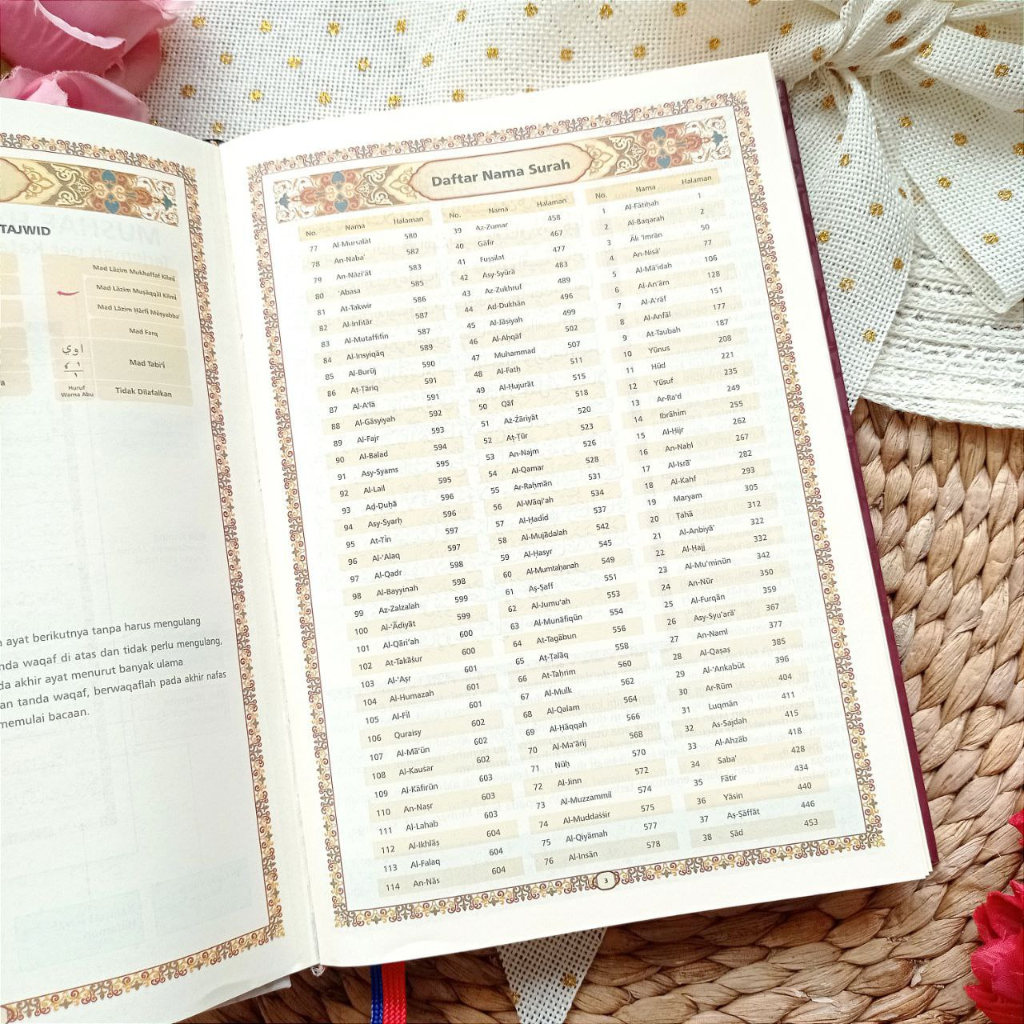 TAJWID
Mad Lāzim Mukhaffaf Kilmī
Mad Lāzim Muṡaqqal Kilmī
Mad Farq
اوي
Mad Tabi'i
Huruf
Warna Abu
Tidak Dilafalkan
ayat berikutnya tanpa harus mengulang
nda waqaf di atas dan tidak perlu mengulang,
da akhir ayat menurut banyak ulama
an tanda waqaf, berwaqaflah pada akhir nafas
memulai bacaan.
Daftar Nama Surah
No. Nama Halaman
1 Al-Fātiḥah 1
2 Al-Baqarah 2
3 Āli 'Imrān 50
4 An-Nisā' 77
5 Al-Mā'idah 106
6 Al-An'ām 128
7 Al-A'rāf 151
8 Al-Anfāl 177
9 At-Taubah 187
10 Yūnus 208
11 Hūd 221
12 Yūsuf 235
13 Ar-Ra'd 249
14 Ibrāhim 255
15 Al-Ḥijr 262
16 An-Naḥl 267
17 Al-Isrā' 282
18 Al-Kahf 293
19 Maryam 305
20 Ṭāhā 312
21 Al-Anbiyā' 322
22 Al-Ḥajj 332
23 Al-Mu'minūn 342
24 An-Nūr 350
25 Al-Furqān 359
26 Asy-Syu'arā' 367
27 An-Naml 377
28 Al-Qaṣaṣ 385
29 Al-'Ankabūt 396
30 Ar-Rūm 404
31 Luqmān 411
32 As-Sajdah 415
33 Al-Aḥzāb 418
34 Saba' 428
35 Fāṭir 434
36 Yāsin 440
37 Aṣ-Ṣāffāt 446
38 Ṣād 453
No. Nama Halaman
39 Az-Zumar 458
40 Gāfir 467
41 Fuṣṣilat 477
42 Asy-Syūrā 483
43 Az-Zukhruf 489
44 Ad-Dukhān 496
45 Al-Jāṡiyah 499
46 Al-Aḥqāf 502
47 Muḥammad 507
48 Al-Fatḥ 511
49 Al-Ḥujurāt 515
50 Qāf 518
51 Aż-Żāriyāt 520
52 Aṭ-Ṭūr 523
53 An-Najm 526
54 Al-Qamar 528
55 Ar-Raḥmān 531
56 Al-Wāqi'ah 534
57 Al-Ḥadīd 537
58 Al-Mujādalah 542
59 Al-Ḥasyr 545
60 Al-Mumtaḥanah 549
61 Aṣ-Ṣaff 551
62 Al-Jumu'ah 553
63 Al-Munāfiqūn 554
64 At-Tagābun 556
65 Aṭ-Ṭalāq 558
66 At-Taḥrim 560
67 Al-Mulk 562
68 Al-Qalam 564
69 Al-Ḥāqqah 566
70 Al-Ma'ārij 568
71 Nūḥ 570
72 Al-Jinn 572
73 Al-Muzzammil 574
74 Al-Muddaṡṡir 575
75 Al-Qiyāmah 577
76 Al-Insān 578
No. Nama Halaman
77 Al-Mursalāt 580
78 An-Naba' 582
79 An-Nāzi'āt 583
80 'Abasa 585
81 At-Takwir 586
82 Al-Infiṭār 587
83 Al-Muṭaffifīn 587
84 Al-Insyiqāq 589
85 Al-Burūj 590
86 Aṭ-Ṭāriq 591
87 Al-A'lā 591
88 Al-Gāsyiyah 592
89 Al-Fajr 593
90 Al-Balad 594
91 Asy-Syams 595
92 Al-Lail 595
93 Aḍ-Ḍuḥā 596
94 Asy-Syarḥ 596
95 At-Tīn 597
96 Al-'Alaq 597
97 Al-Qadr 598
98 Al-Bayyinah 598
99 Az-Zalzalah 599
100 Al-'Ādiyāt 599
101 Al-Qāri'ah 600
102 At-Takāṡur 600
103 Al-'Aṣr 601
104 Al-Humazah 601
105 Al-Fil 601
106 Quraisy 602
107 Al-Mā'ūn 602
108 Al-Kauṡar 602
109 Al-Kāfirūn 603
110 An-Naṣr 603
111 Al-Lahab 603
112 Al-Ikhlāṣ 604
113 Al-Falaq 604
114 An-Nās 604
3